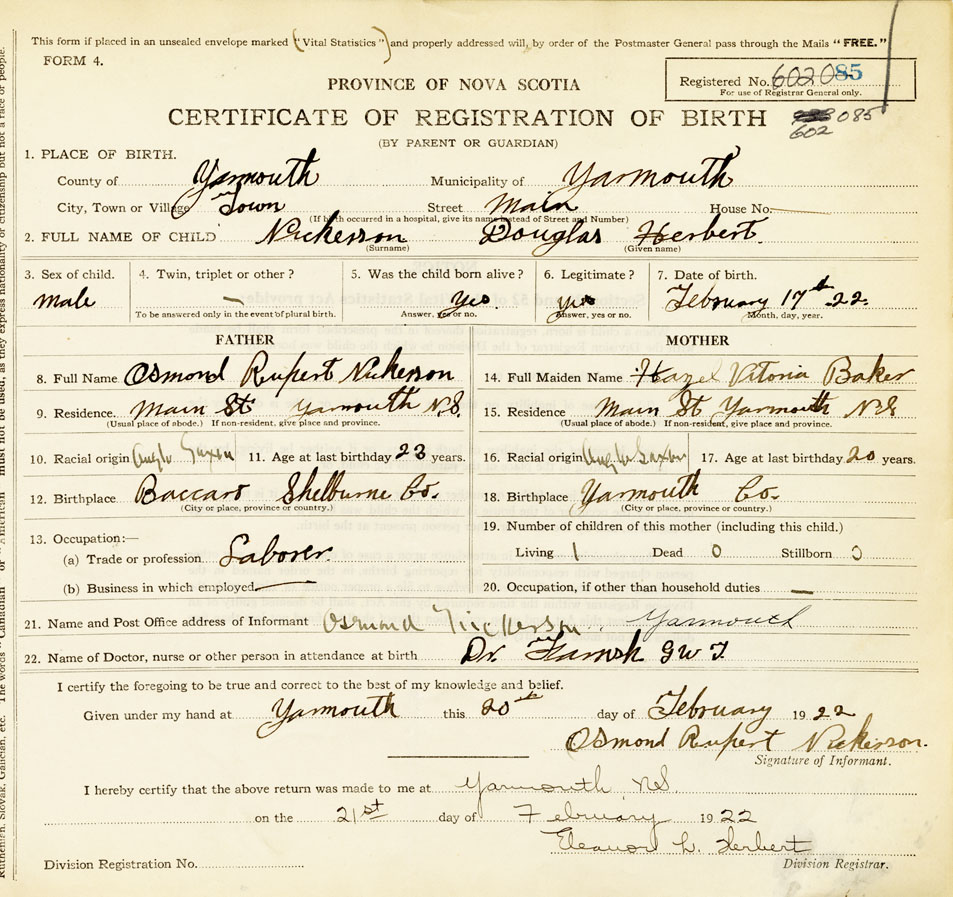 This form if placed in an unsealed envelope marked ("Vital Statistics") and properly addressed will, by order of the Postmaster General pass through the Mails "FREE."
FORM 4.
Registered No. 602085
For use of Registrar General only.
PROVINCE OF NOVA SCOTIA
CERTIFICATE OF REGISTRATION OF BIRTH
085
602
(BY PARENT OR GUARDIAN)
1. PLACE OF BIRTH.
County of Yarmouth Municipality of Yarmouth
City, Town or Village Town Street Main House No.
(If birth occurred in a hospital, give its name instead of Street and Number)
2. FULL NAME OF CHILD Nickerson Douglas Herbert.
(Surname) (Given name)
3. Sex of child. 4. Twin, triplet or other? 5. Was the child born alive? 6. Legitimate? 7. Date of birth.
male — Yes yes February 17th 22.
To be answered only in the event of plural birth. Answer, yes or no. Answer, yes or no. Month, day, year.
FATHER MOTHER
8. Full Name Osmond Rupert Nickerson 14. Full Maiden Name Hazel Vitoria Baker
9. Residence. Main St Yarmouth N.S. 15. Residence Main St Yarmouth N.S
(Usual place of abode.) If non-resident, give place and province. (Usual place of abode.) If non-resident, give place and province.
10. Racial origin Anglo Saxon 11. Age at last birthday 23 years. 16. Racial origin Anglo Saxon 17. Age at last birthday 20 years.
12. Birthplace Baccaro Shelburne Co. 18. Birthplace Yarmouth Co.
(City or place, province or country.) (City or place, province or country.)
13. Occupation:— 19. Number of children of this mother (including this child.)
(a) Trade or profession Laborer. Living 1 Dead 0 Stillborn 0
(b) Business in which employed — 20. Occupation, if other than household duties —
21. Name and Post Office address of Informant Osmond Nickerson. Yarmouth
22. Name of Doctor, nurse or other person in attendance at birth Dr. G W T.
I certify the foregoing to be true and correct to the best of my knowledge and belief.
Given under my hand at Yarmouth this 20th day of February 1922
Osmond Rupert Nickerson.
Signature of Informant.
I hereby certify that the above return was made to me at Yarmouth N.S.
on the 21st day of February 1922
Eleanor L. Herbert
Division Registration No. Division Registrar.
Ruthenian, Slovak, Galician, etc. The words "Canadian" or "American" must not be used, as they express nationality or citizenship but not a race or people.